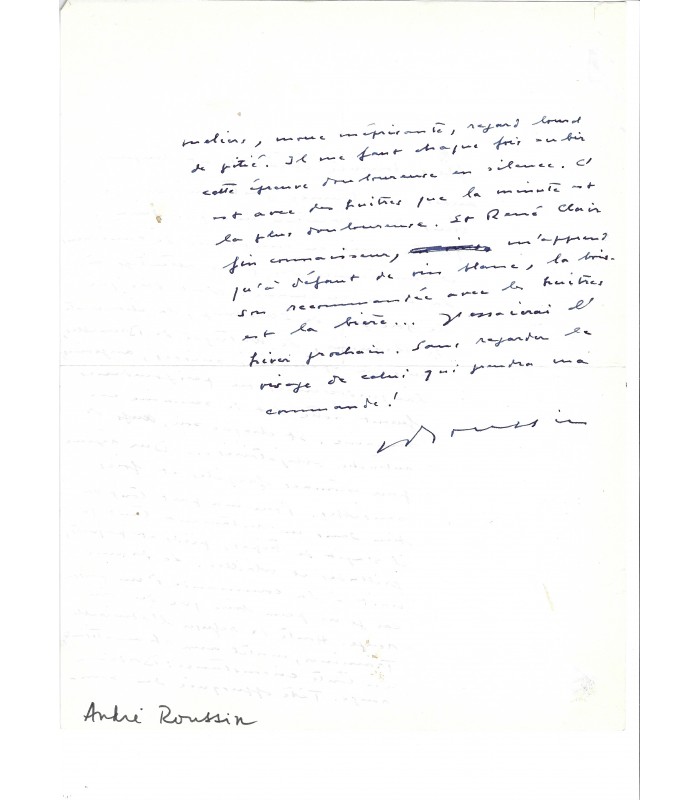 meliers, moue méprisante, regard lourd
de pitié. Il me faut chaque fois subir
cette épreuve douloureuse en silence. C'
est avec des huîtres que la minute est
la plus douloureuse. Et René Clair
fin connaisseur, m'apprend
qu'à défaut de vin blanc, la bois-
son recommandée avec les huîtres
est la bière... J'essaierai l'
hiver prochain. Sans regarder le
visage de celui qui prendra ma
commande!
Roussin
André Roussin